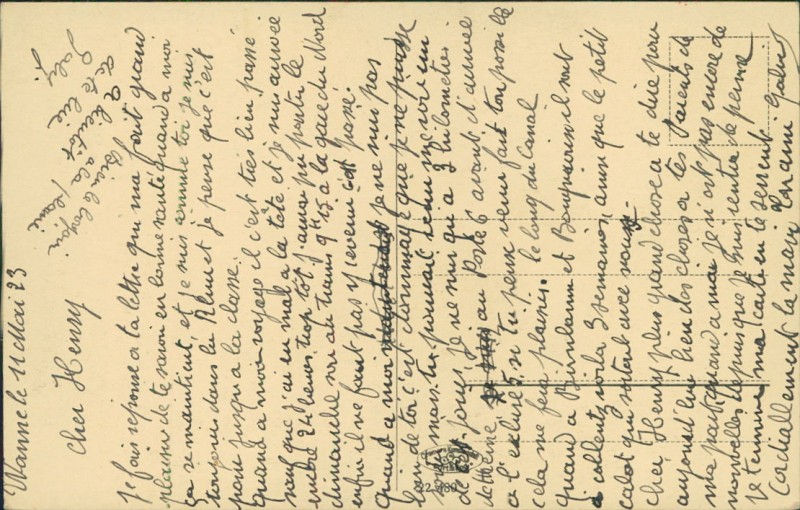 Wanne le 11 Mai 23
Cher Henry
Je fais reponse a ta lettre qui ma fait grand
plaisir de te savoir en bonne santé quand a moi
ça se maintient, et je suis comme toi je suis
toujours dans la Rhur et je pense que c'est
pour jusqu'a la classe.
Quand a mon voyage il c'est très bien passé
sauf que j'ai eu mal a la tête et je suis arrivée
24 heures trop tot j'aurai pu partir le
dimanche soir au train 9h 15 a la gare du Nord
enfin il ne faut pas y revenir c'est passé.
Quand a moi je ne suis pas
loin de toi c'est dommage que je ne puisse
mais tu pourrait venir me voir un
de ces jours je ne suis qu'a 3 kilometres
de Herne au Poste 6 avant d'arrivée
a l'ecluse 5 si tu peux venir fait ton possible
cela me fera plaisir. le long du Canal
Quand a et il sont
a collents voila 3 semaines, ainsi que le petit
calot qui sortent avec nous.
Cher Henry plus grand chose a te dire pour
aujourd'hui bien des choses a tes Parents de
ma part quand a moi je n'est pas encore de
nouvelles depuis que je suis rentré de perme
Je termine ma carte en te serrent
Cordiallement la main Ton ami
Bien le bonjour
a la
A bientot
de te lire